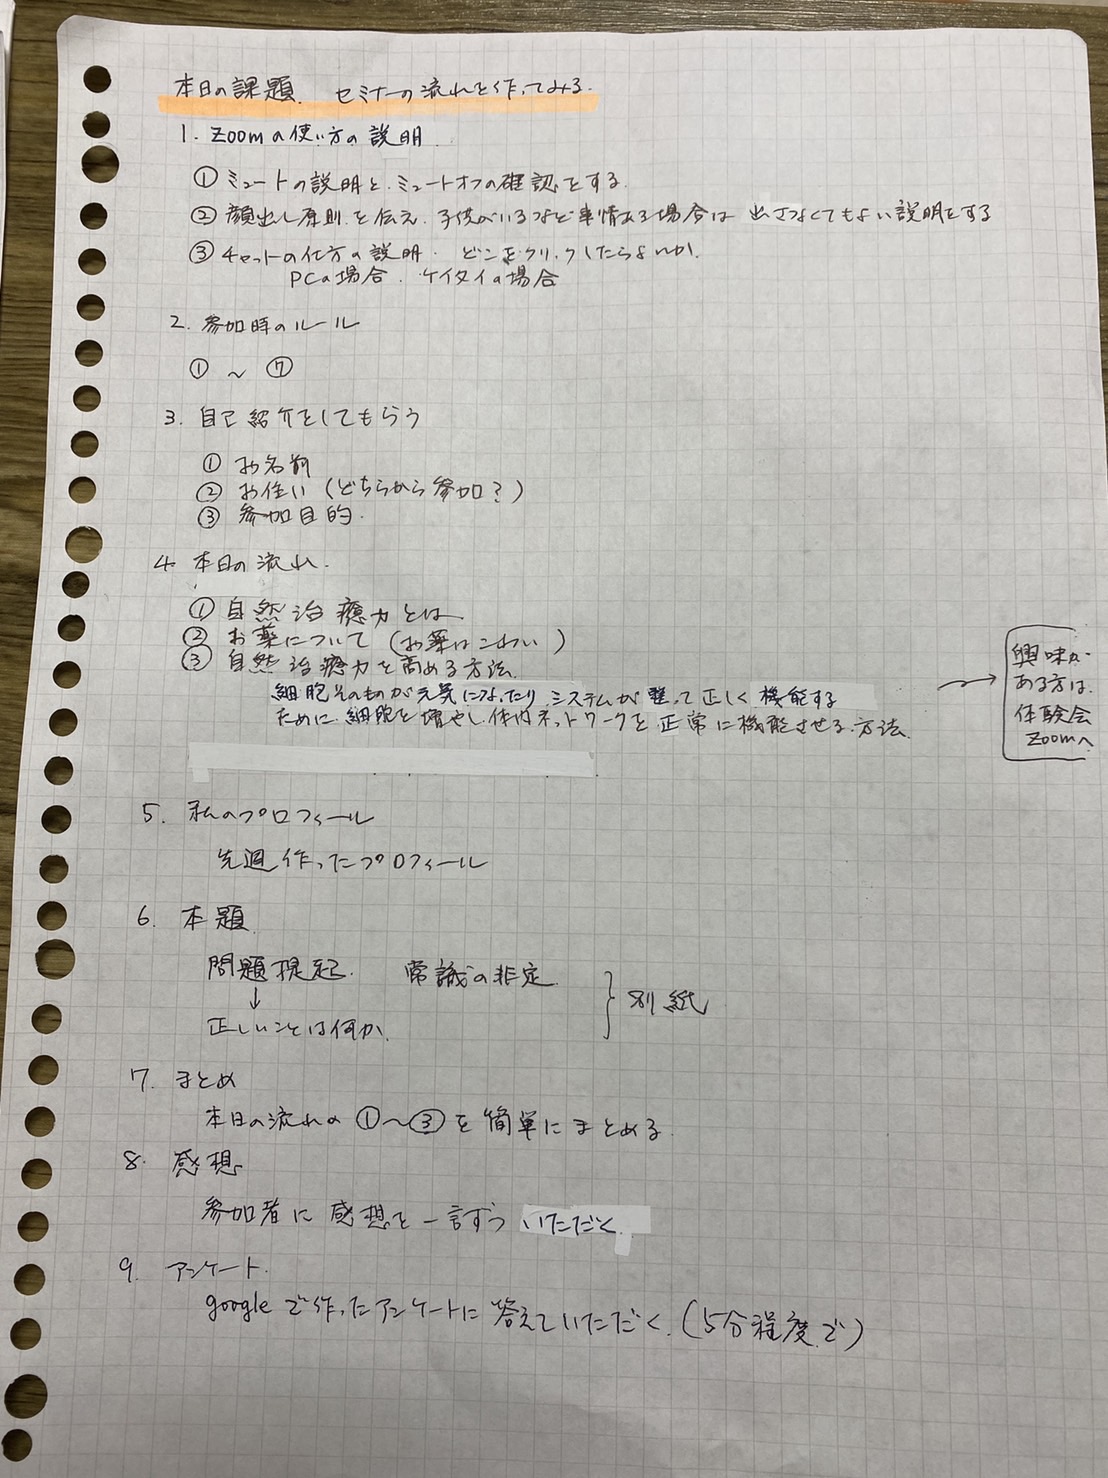 本日の課題. セミナーの流れを作ってみる.
1. Zoomの使い方の説明.
① ミュートの説明と、ミュートオフの確認をする.
② 顔出し原則を伝え、子供がいるなど事情ある場合は 出さなくてもよい説明をする
③ チャットの仕方の説明. どこをクリックしたらよいか.
PCの場合. ケイタイの場合
2. 参加時のルール
① 〜 ⑦
3. 自己紹介をしてもらう
① お名前
② お住い (どちらから参加?)
③ 参加目的.
4. 本日の流れ.
① 自然治癒力とは
② お薬について (お薬はこわい)
③ 自然治癒力を高める方法.
細胞そのものが元気になったり システムが整って正しく機能する
ために 細胞を増やし.体内ネットワークを正常に機能させる.方法.
→ 興味が
ある方は.
体験会
Zoomへ
5. 私のプロフィール
先週作ったプロフィール
6. 本題.
問題提起. 常識の非定.
↓
正しいことは何か.
} 別紙
7. まとめ
本日の流れの ①〜③を簡単にまとめる.
8. 感想
参加者に感想を一言ずつ いただく.
9. アンケート.
googleで作ったアンケートに答えていただく.(5分程度.で)